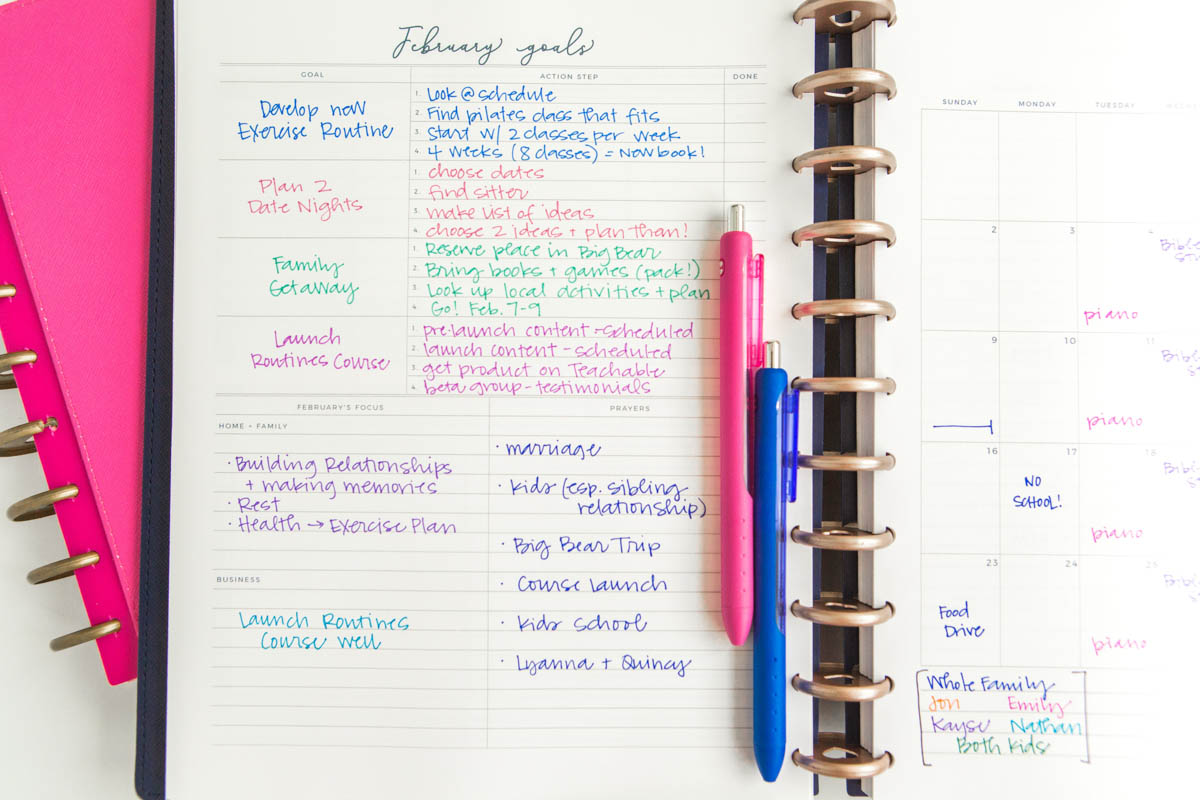 February goals
GOAL ACTION STEP DONE
Develop new
Exercise Routine
1. Look @ schedule
2. Find pilates class that fits
3. Start w/ 2 classes per week
4. 4 weeks (8 classes) = New book!
Plan 2
Date Nights
1. choose dates
2. find sitter
3. make list of ideas
4. choose 2 ideas + plan than!
Family
Getaway
1. Reserve place in Big Bear
2. Bring books + games (pack!)
3. Look up local activities + plan
4. Go! Feb. 7-9
Launch
Routines Course
1. pre-launch content - scheduled
2. launch content - scheduled
3. get product on Teachable
4. beta group - testimonials
FEBRUARY'S FOCUS
HOME + FAMILY
· Building Relationships
+ making memories
· Rest
· Health → Exercise Plan
BUSINESS
Launch Routines
Course well
PRAYERS
· marriage
· kids (esp. sibling
relationship)
· Big Bear Trip
· Course launch
· kids school
· Lyanna + Quincy
SUNDAY MONDAY TUESDAY
2 3 4
piano
9 10 11
piano
16 17 18
NO
SCHOOL!
piano
23 24 25
Food
Drive
piano
Whole Family
Jon Emily
Kayse Nathan
Both kids